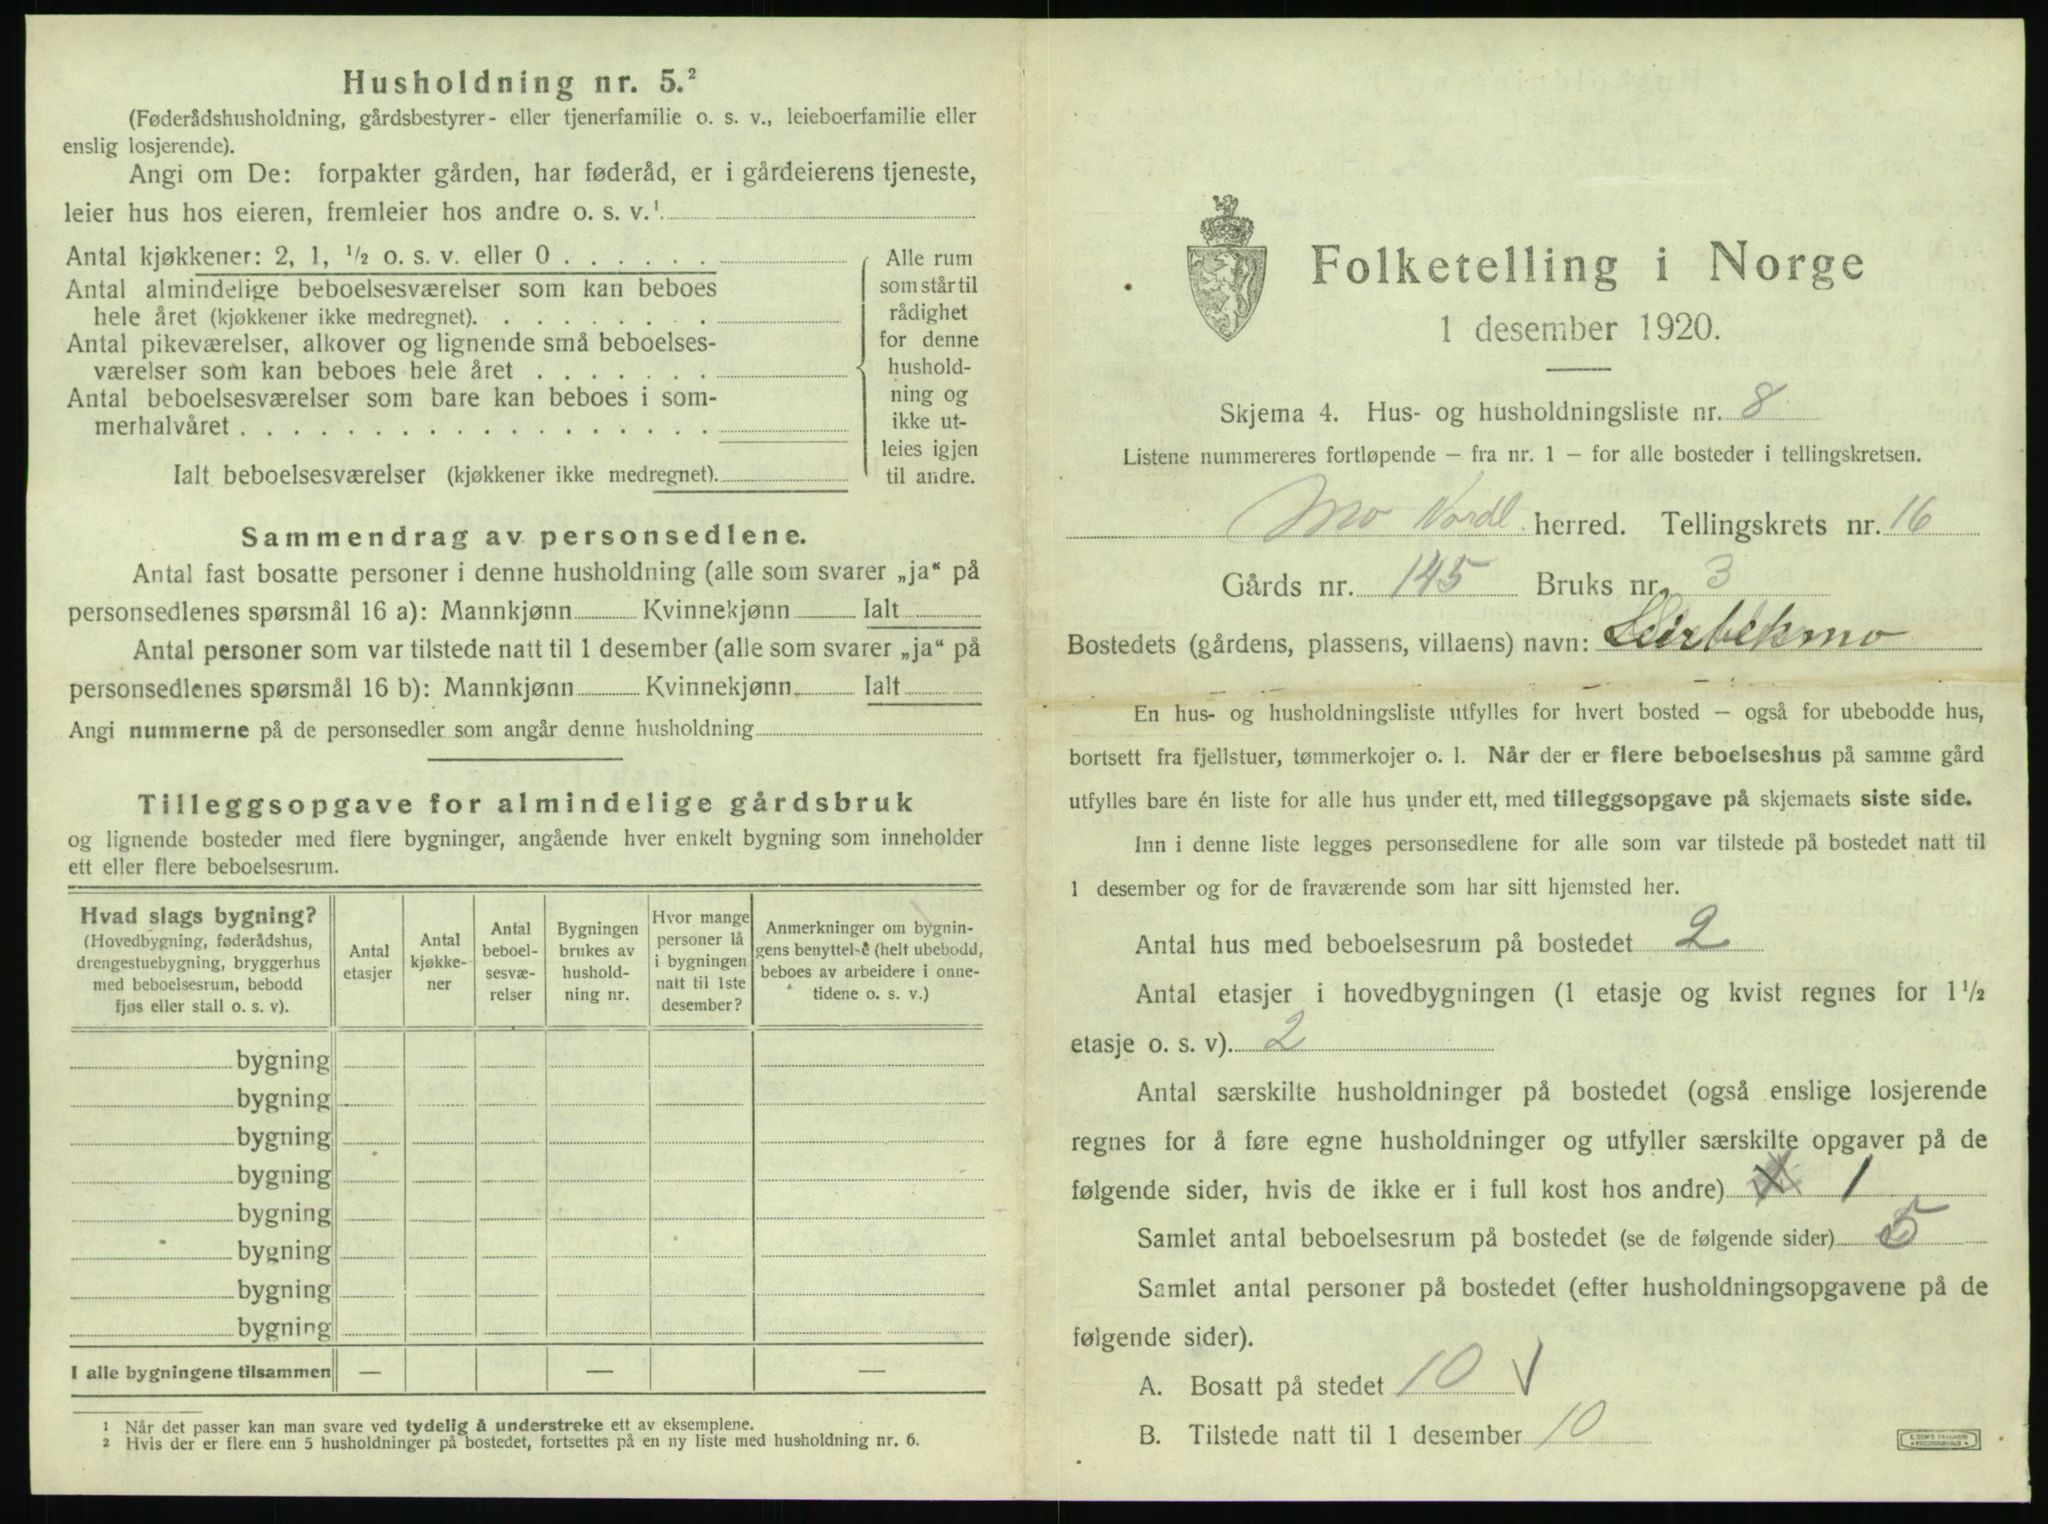 Husholdning nr. 5.²
(Føderådshusholdning, gårdsbestyrer- eller tjenerfamilie o. s. v., leieboerfamilie eller
enslig losjerende).
Angi om De: forpakter gården, har føderåd, er i gårdeierens tjeneste,
leier hus hos eieren, fremleier hos andre o. s. v.¹
Antal kjøkkener: 2, 1, ½ o. s. v. eller 0 . . . . . .
Antal almindelige beboelsesværelser som kan beboes
hele året (kjøkkener ikke medregnet). . . . . . . . .
Antal pikeværelser, alkover og lignende små beboelses-
værelser som kan beboes hele året . . . . . . .
Antal beboelsesværelser som bare kan beboes i som-
merhalvåret . . . . . . . . . . . . . . . . . .
Ialt beboelsesværelser (kjøkkener ikke medregnet).
Alle rum
som står til
rådighet
for denne
hushold-
ning og
ikke ut-
leies igjen
til andre.
Sammendrag av personsedlene.
Antal fast bosatte personer i denne husholdning (alle som svarer „ja“ på
personsedlenes spørsmål 16 a): Mannkjønn Kvinnekjønn Ialt
Antal personer som var tilstede natt til 1 desember (alle som svarer „ja“ på
personsedlenes spørsmål 16 b): Mannkjønn Kvinnekjønn Ialt
Angi nummerne på de personsedler som angår denne husholdning
Tilleggsopgave for almindelige gårdsbruk
og lignende bosteder med flere bygninger, angående hver enkelt bygning som inneholder
ett eller flere beboelsesrum.
Hvad slags bygning?
(Hovedbygning, føderådshus,
drengestuebygning, bryggerhus
med beboelsesrum, bebodd
fjøs eller stall o. s. v).
Antal
etasjer
Antal
kjøkke-
ner
Antal
beboel-
sesvæ-
relser
Bygningen
brukes av
hushold-
ning nr.
Hvor mange
personer lå
i bygningen
natt til 1ste
desember?
Anmerkninger om bygnin-
gens benyttelse (helt ubebodd,
beboes av arbeidere i onne-
tidene o. s. v.)
bygning
bygning
bygning
bygning
bygning
bygning
bygning
bygning
I alle bygningene tilsammen — — —
¹ Når det passer kan man svare ved tydelig å understreke ett av eksemplene.
² Hvis der er flere enn 5 husholdninger på bostedet, fortsettes på en ny liste med husholdning nr. 6.
Folketelling i Norge
1 desember 1920.
Skjema 4. Hus- og husholdningsliste nr. 8
Listene nummereres fortløpende – fra nr. 1 – for alle bosteder i tellingskretsen.
Mo Nordl. herred. Tellingskrets nr. 16
Gårds nr. 145 Bruks nr. 3
Bostedets (gårdens, plassens, villaens) navn: Leirbekmo
En hus- og husholdningsliste utfylles for hvert bosted – også for ubebodde hus,
bortsett fra fjellstuer, tømmerkojer o. l. Når der er flere beboelseshus på samme gård
utfylles bare én liste for alle hus under ett, med tilleggsopgave på skjemaets siste side.
Inn i denne liste legges personsedlene for alle som var tilstede på bostedet natt til
1 desember og for de fraværende som har sitt hjemsted her.
Antal hus med beboelsesrum på bostedet 2
Antal etasjer i hovedbygningen (1 etasje og kvist regnes for 1½
etasje o. s. v). 2
Antal særskilte husholdninger på bostedet (også enslige losjerende
regnes for å føre egne husholdninger og utfyller særskilte opgaver på de
følgende sider, hvis de ikke er i full kost hos andre) 1
Samlet antal beboelsesrum på bostedet (se de følgende sider) 5
Samlet antal personer på bostedet (efter husholdningsopgavene på de
følgende sider).
A. Bosatt på stedet 10 √
B. Tilstede natt til 1 desember 10